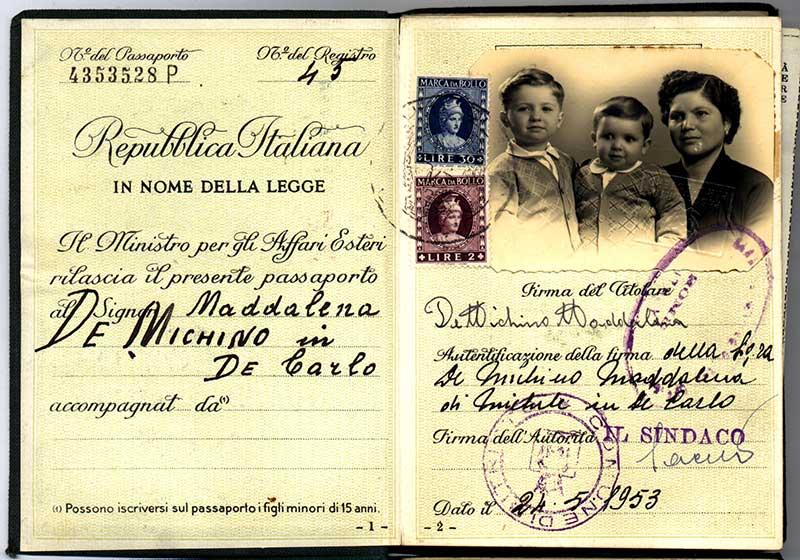 N.º del Passaporto
4353528 P
N.º del Registro
45
Repubblica Italiana
IN NOME DELLA LEGGE
Il Ministro per gli Affari Esteri
rilascia il presente passaporto
al Signor Maddalena
DE MICHINO in
DE Carlo
accompagnat da(1)
(1) Possono iscriversi sul passaporto i figli minori di 15 anni.
- 1 -
MARCA DA BOLLO
LIRE 30
MARCA DA BOLLO
LIRE 2
Firma del Titolare
De Michino Maddalena
Autentificazione della firma della
De Michino Maddalena
di in De Carlo
Firma dell'Autorità IL SINDACO
COMUNE DI
Dato il 24-5-1953
- 2 -